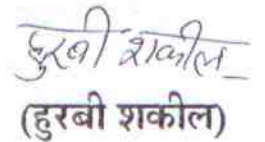 हुरबी शकील
(हुरबी शकील)